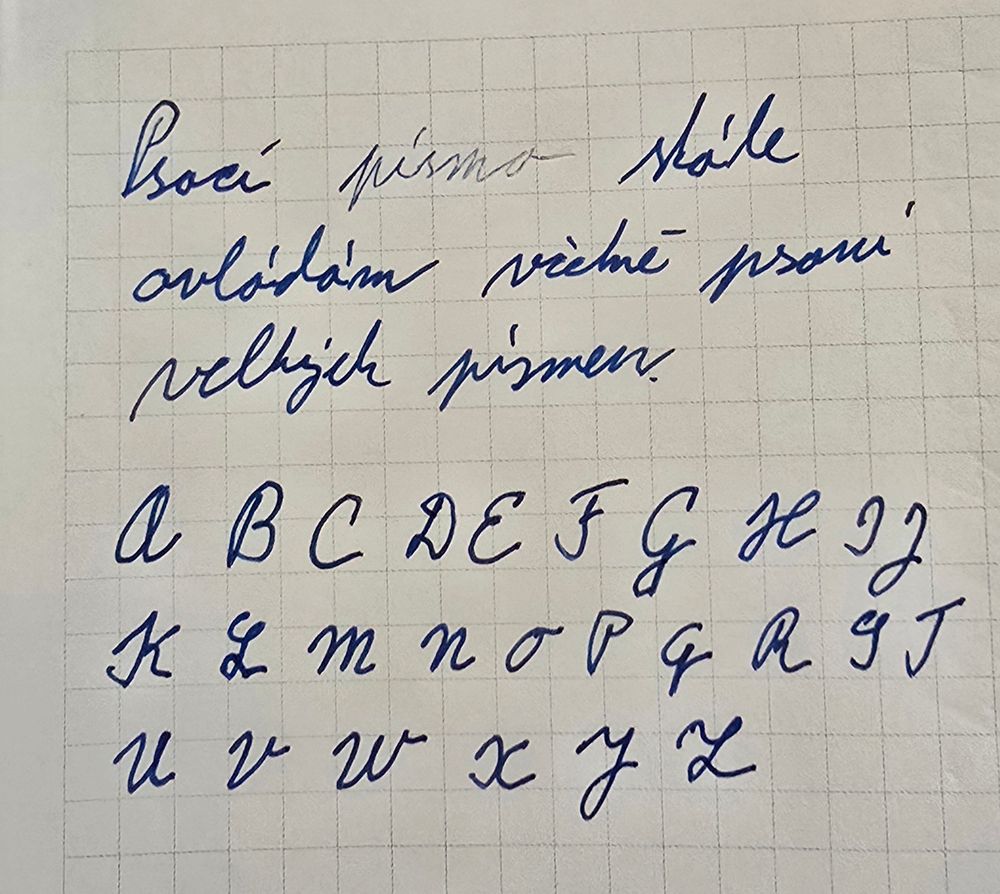 Psací písmo stále
ovládám včetně psaní
velkých písmen.
A B C D E F G H I J
K L M N O P Q R S T
U V W X Y Z